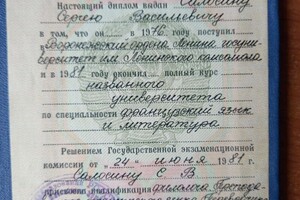 Настоящий диплом выдан Самосину
Сергею Васильевичу
в том, что он в 1976 году поступил
ордена Ленина госуни-
верситет им Ленинского комсомола
и в 1981 году окончил полный курс
названного
университета
по специальности французский язык
и литература
Решением Государственной экзаменационной
комиссии от "24" июня 1981 г.
С В
присвоена квалификация филолога